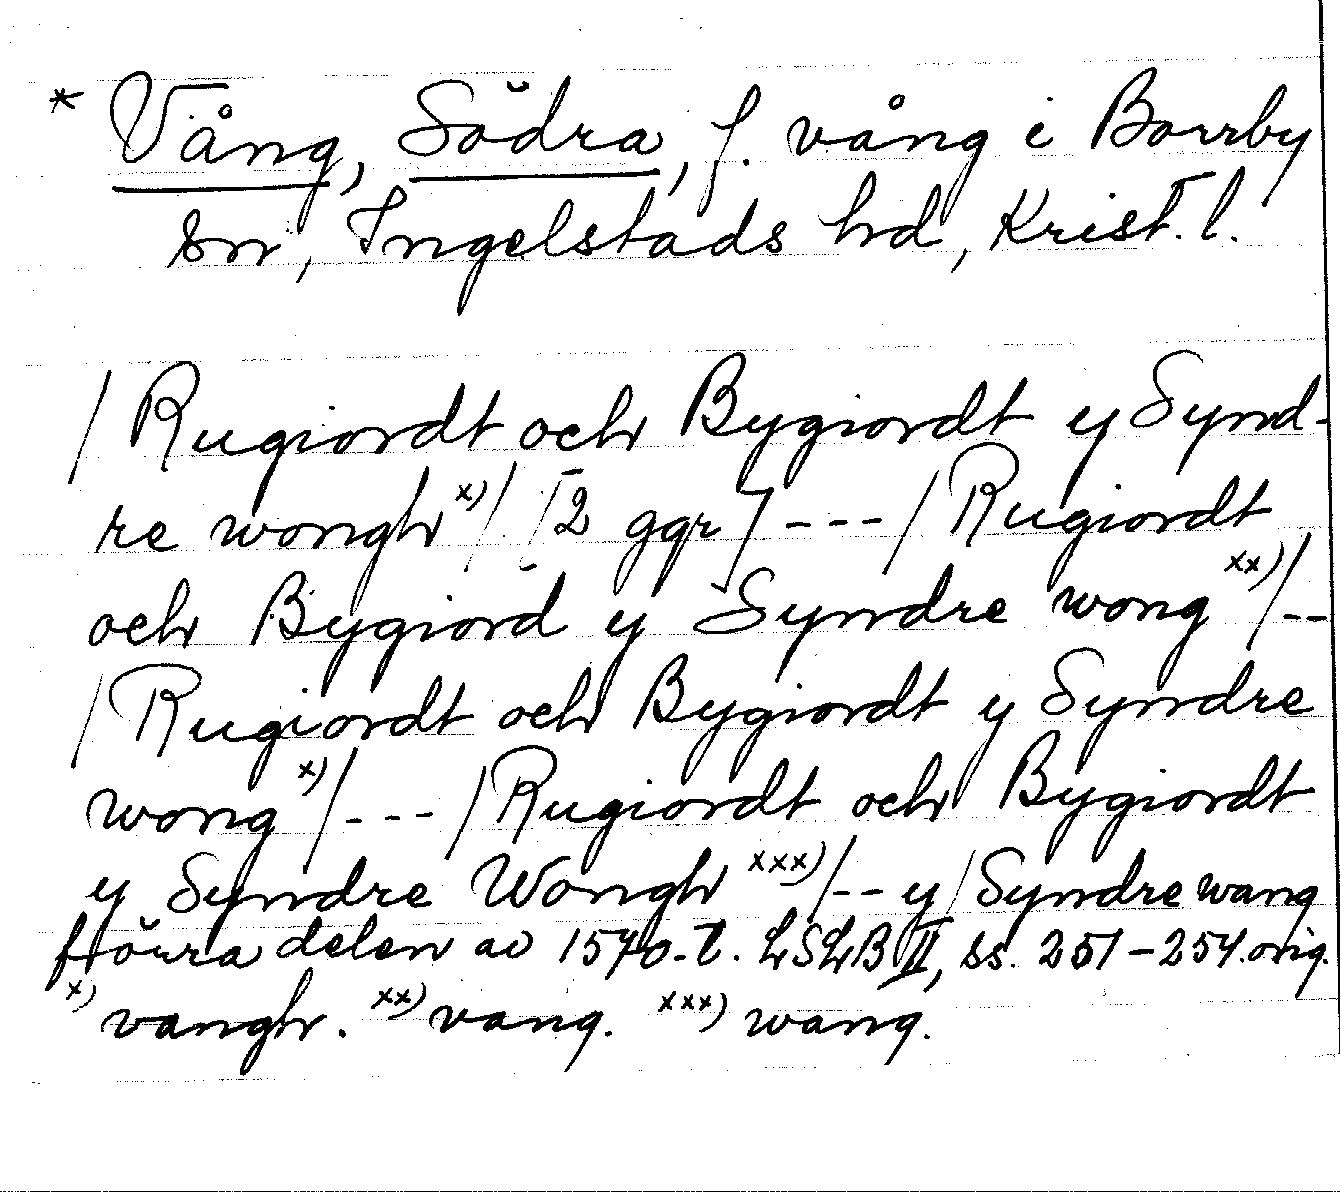 * Vång, Södra, f. vång i Borrby
sn, Ingelstads hd, Krist. l.
/Rugiordt och Bygiordt y Synd-
re wongh x)/ [2 ggr] --- /Rugiordt
och Bygiord y Syndre wong xx)/--
/Rugiordt och Bygiordt y Syndre
wong x)/--- /Rugiordt och Bygiordt
y Syndre Wongh xxx)/-- y /Syndre wang
f. förra delen av 1570-t. LSLB II, ss. 251-254. orig.
x) vangh. xx) vang. xxx) wang.